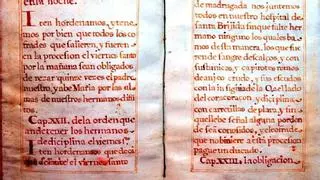 en la noche.
Iten hordenamos, y tene
mos por bien que todos los co
frades que salieren, y fueren
en la procesion el viernes santo
por la mañana sean obligados
de rezar quinze veces el padre
nuestro, y abe Maria por las al
mas de nuestros hermanos difũ
tos.
Cap. XXII, de la orden que
an de tener los hermanos
de disciplina el viernes
Iten hordenamos que
el viernes santo
de madrugada nos juntemos
todos en nuestro hospital de
santa Brijida sin que falte her
mano ninguno los quales ba
mos de esta manera, los que fue
ren de sangre descalços, y con
sus tunicas, y capirotes romos
de lienço crudo, y sus escudos
con la insignia de la llagado
del coraçon, y disciplina
con carretillas de plata, y sin
que llebe señal alguna por don
de sea conosido, y el cofrade
que no biniere a esta procesion
pague un ducado.
Cap. XXIII, la obligacion